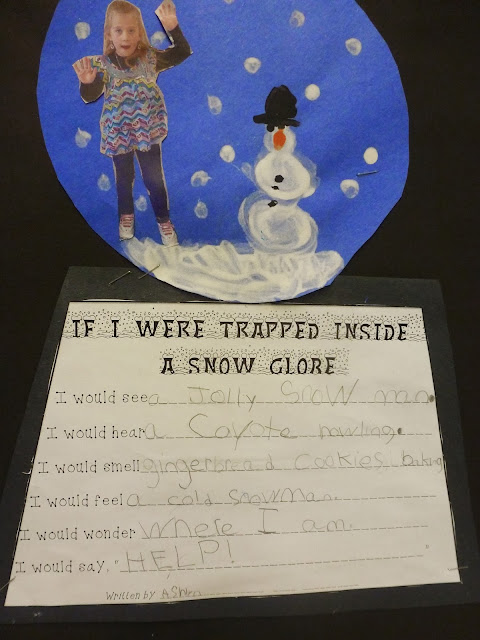 IF I WERE TRAPPED INSIDE
A SNOW GLOBE
I would see a Jolly Snow man.
I would hear a Coyote howling.
I would smell gingerbread Cookies baking
I would feel a cold snowman.
I would wonder Where I am.
I would say, "HELP!"
Written by